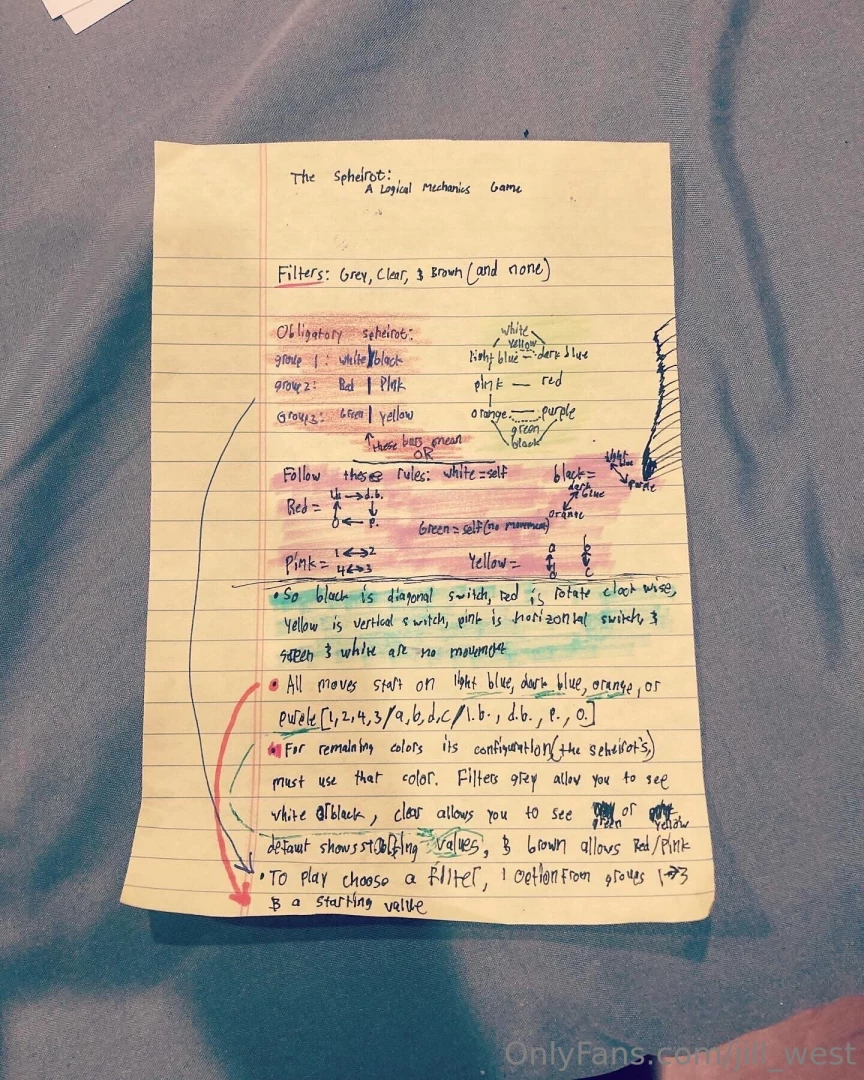 The Spheirot:
A Logical Mechanics Game
Filters: Grey, Clear, & Brown (and none)
Obligatory spheirot:
group 1: white | black
group 2: Red | Pink
Group 3: Green | yellow
↑ these bars mean
OR
white
yellow
light blue — dark blue
pink — red
orange — purple
green
black
Follow these rules: white = self
black =
purple
dark blue
orange
Red =
l.b. → d.b.
o ← p.
Green = self (no movement)
Pink =
1 ↔ 2
4 ↔ 3
Yellow =
a b
d c
• So black is diagonal switch, red is rotate clock wise,
yellow is vertical switch, pink is horizontal switch, &
green & white are no movement
• All moves start on light blue, dark blue, orange, or
purple [1,2,4,3/a,b,d,c/l.b., d.b., p., o.]
• For remaining colors its configuration (the spheirot's)
must use that color. Filters grey allow you to see
white or black, clear allows you to see green or yellow
defaut shows starting values, & brown allows Red/Pink
• To play choose a filter, 1 option from groups 1→3
& a starting value
OnlyFans.com/jill_west